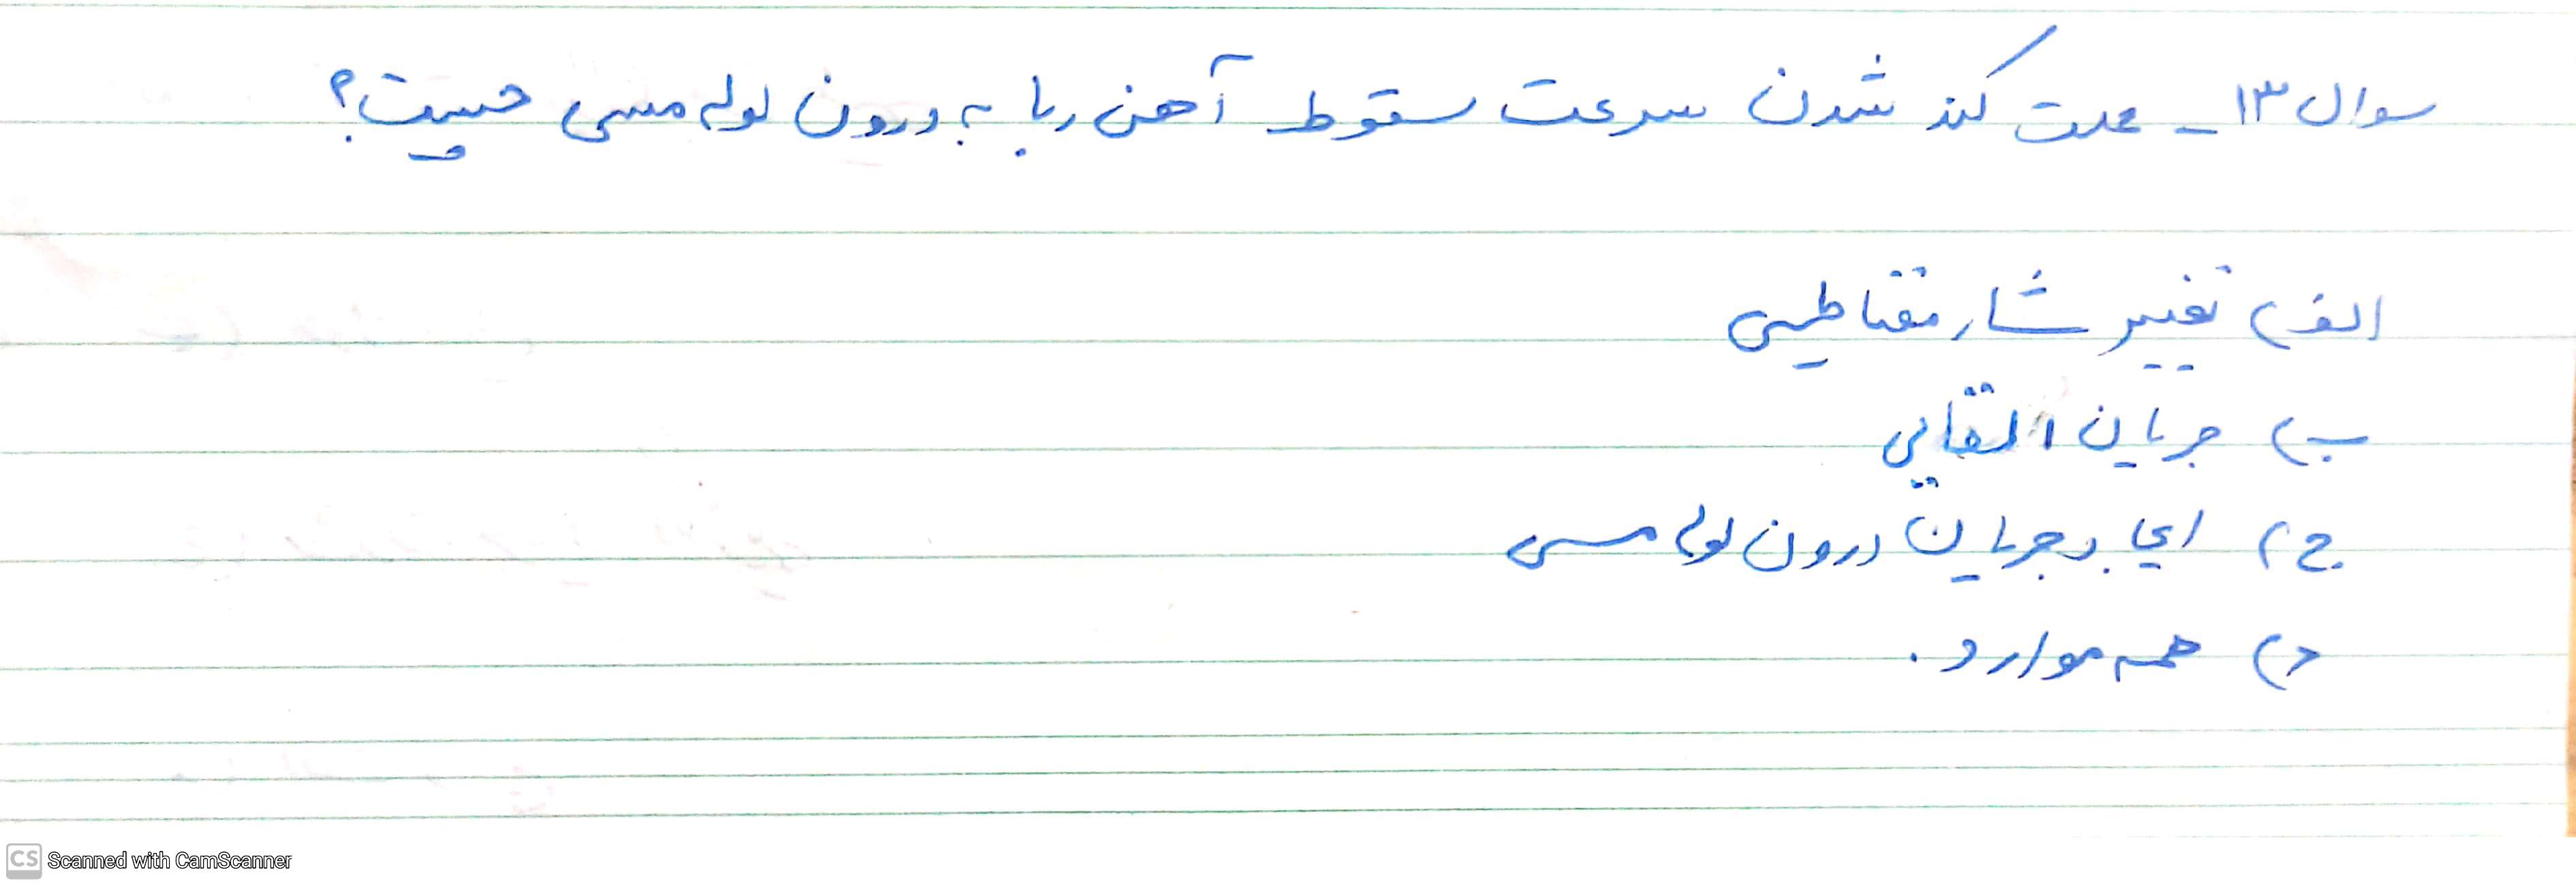 سوال ۱۳ - علت کند شدن سرعت سقوط آهن ربا به درون لوله مسی چیست؟
الف) تغییر شار مغناطیسی
ب) جریان القایی
ج) ایجاد جریان درون لوله مسی
د) همه موارد.
CS Scanned with CamScanner